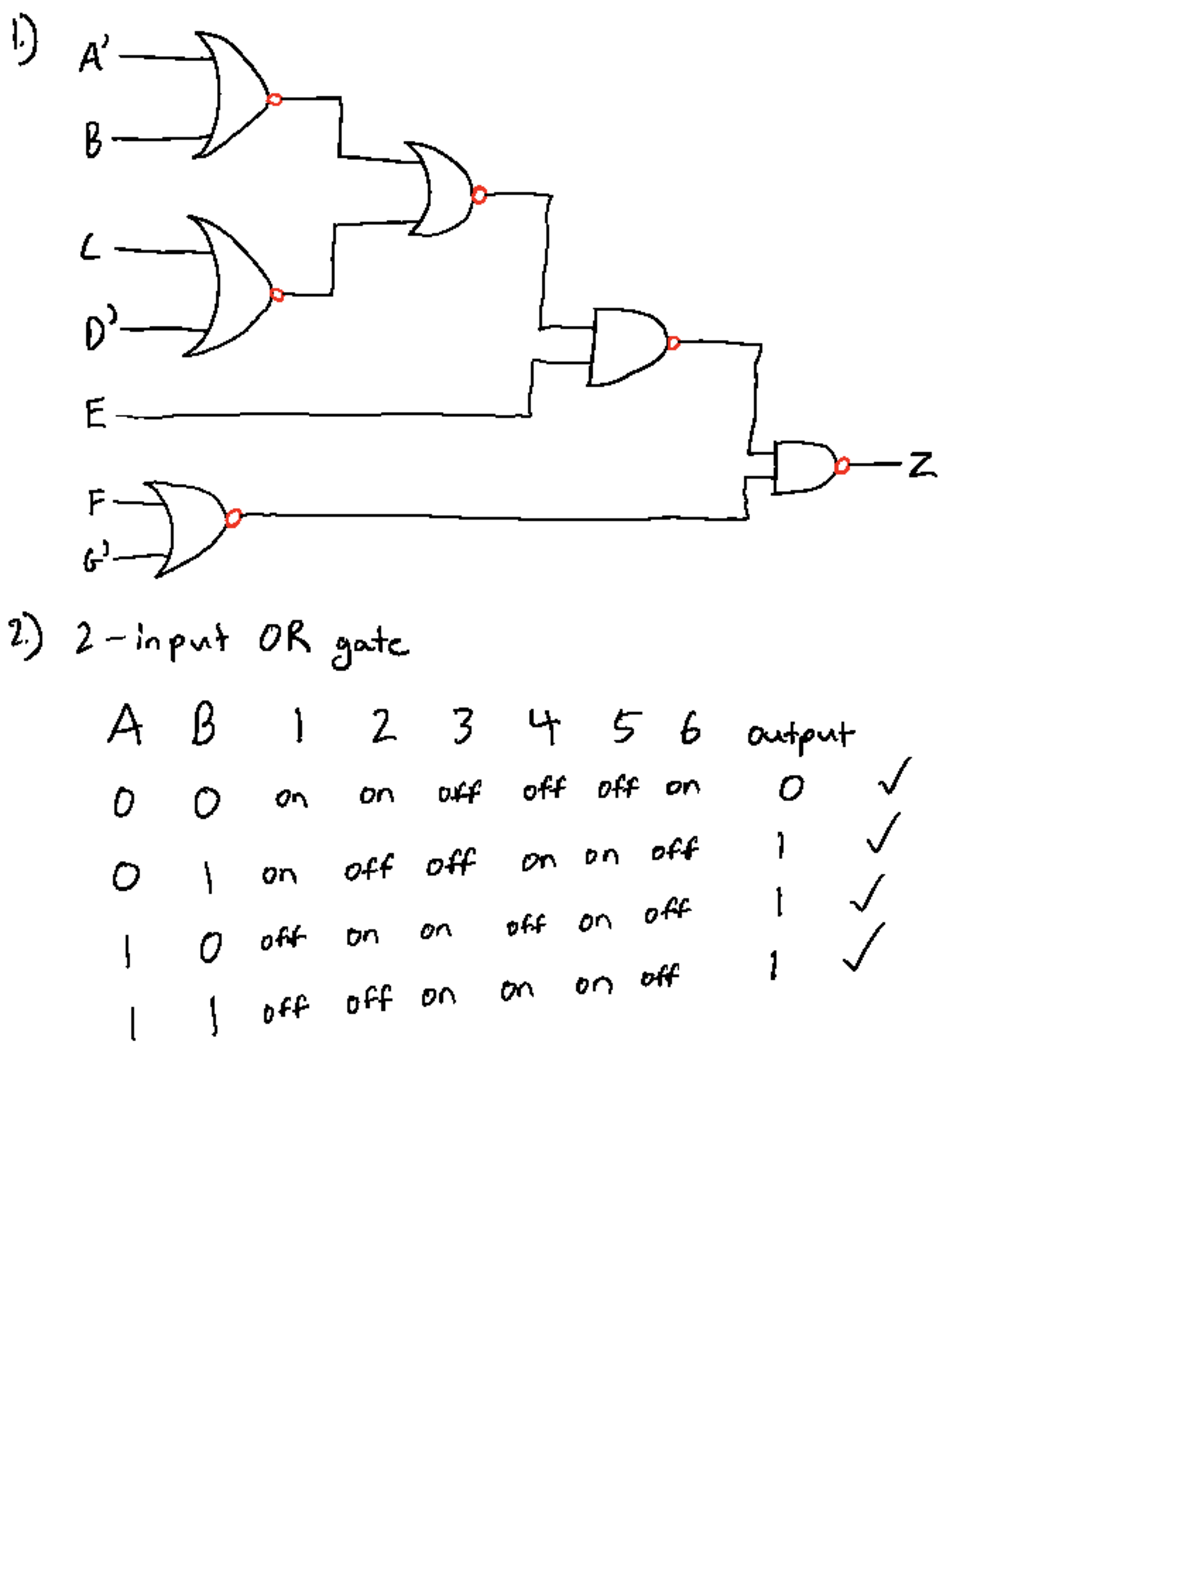 1.)
A'
B
C
D'
E
Z
F
G'
2.) 2-input OR gate
A B 1 2 3 4 5 6 output
0 0 on on off off off on 0 ✓
0 1 on off off on on off 1 ✓
1 0 off on on off on off 1 ✓
1 1 off off on on on off 1 ✓